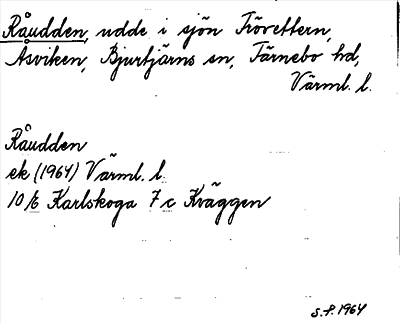 Råudden, udde i sjön Frövettern,
Åsviken, Bjurtjärns sn, Färnebo hd,
Värml. l.
Råudden
ek (1964) Värml. l.
10/E Karlskoga 7 c Kväggen
S.F. 1964